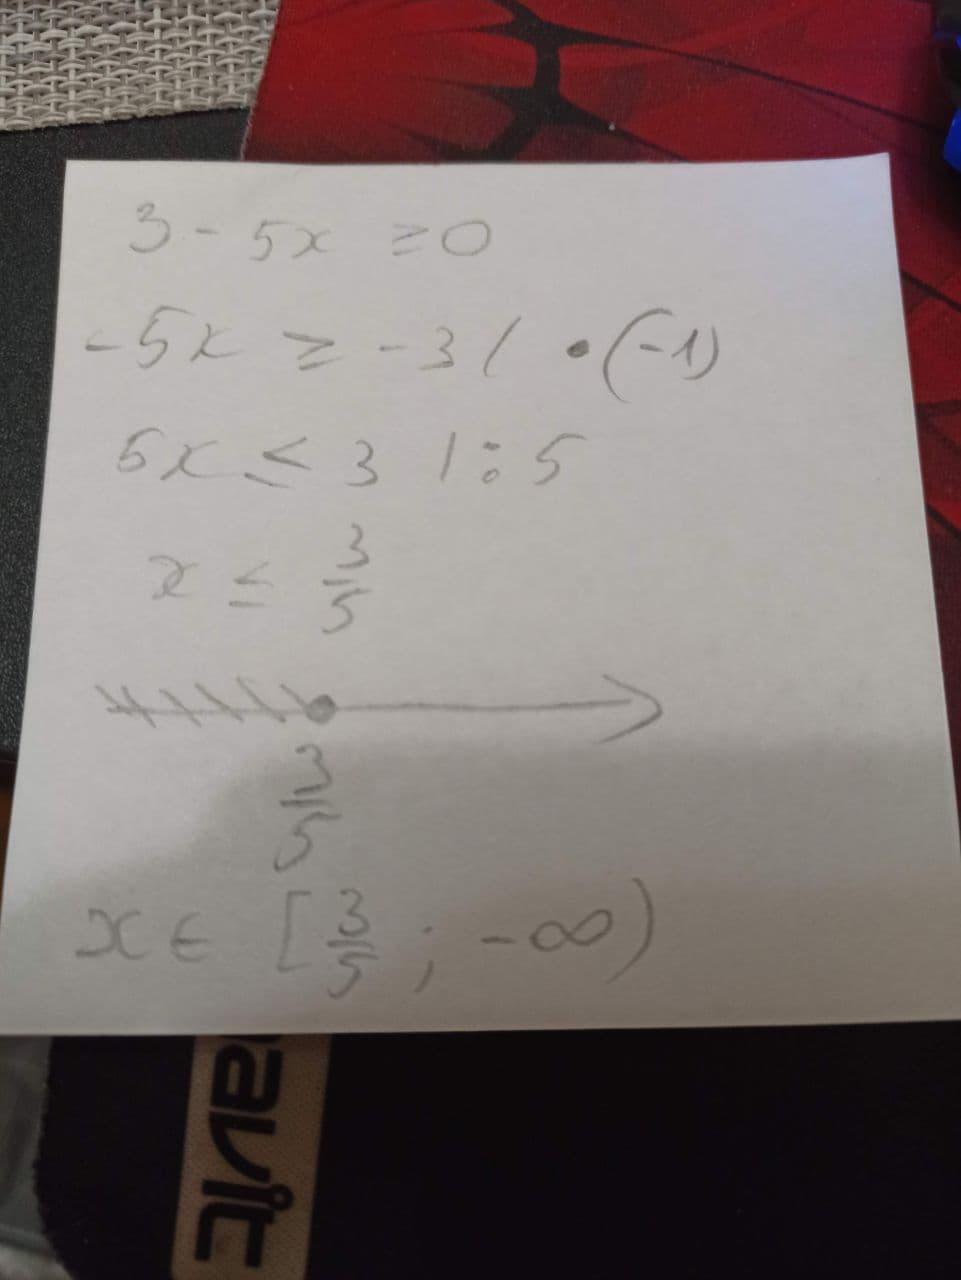 3 - 5x ≥ 0
-5x ≥ -3 / • (-1)
5x ≤ 3 | : 5
x ≤ 3/5
3/5
x ∈ [3/5 ; -∞)
avit